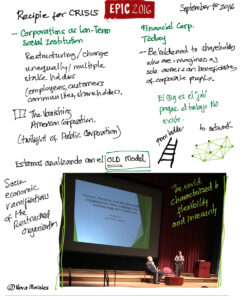 Recipe for CRISIS
EPIC2016
September 1st 2016
- Corporations as Lon-Term
Social Institution
Restructuring/change
unequally/multiple
stake holder
(employees, customers
communities, shareholders,
The Vanishing
American Corporation.
(twilight of Public Corporation)
Financial Corp.
Today
- Be beholden to shareholders
who are imagines as
sole owners an beneficiaries
of corporate profits.
El Gig es el "job"
porque el trabajo NO
existe
from ladder
to network
Estamos analizando con el OLD Model
Socio-
economic
ramifications
of the
Restructured
organization
The world
characterized by
flexibility
and insecurity
©Nora Morales